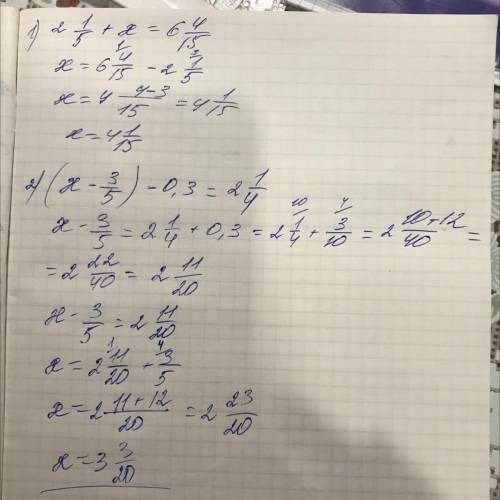 1) 2 1/5 + x = 6 4/15
x = 6 4/15 - 2 1/5
x = 4 (4-3)/15 = 4 1/15
x = 4 1/15
2) (x - 3/5) - 0,3 = 2 1/4
x - 3/5 = 2 1/4 + 0,3 = 2 1/4 + 3/10 = 2 (10+12)/40 =
= 2 22/40 = 2 11/20
x - 3/5 = 2 11/20
x = 2 11/20 + 3/5
x = 2 (11+12)/20 = 2 23/20
x = 3 3/20